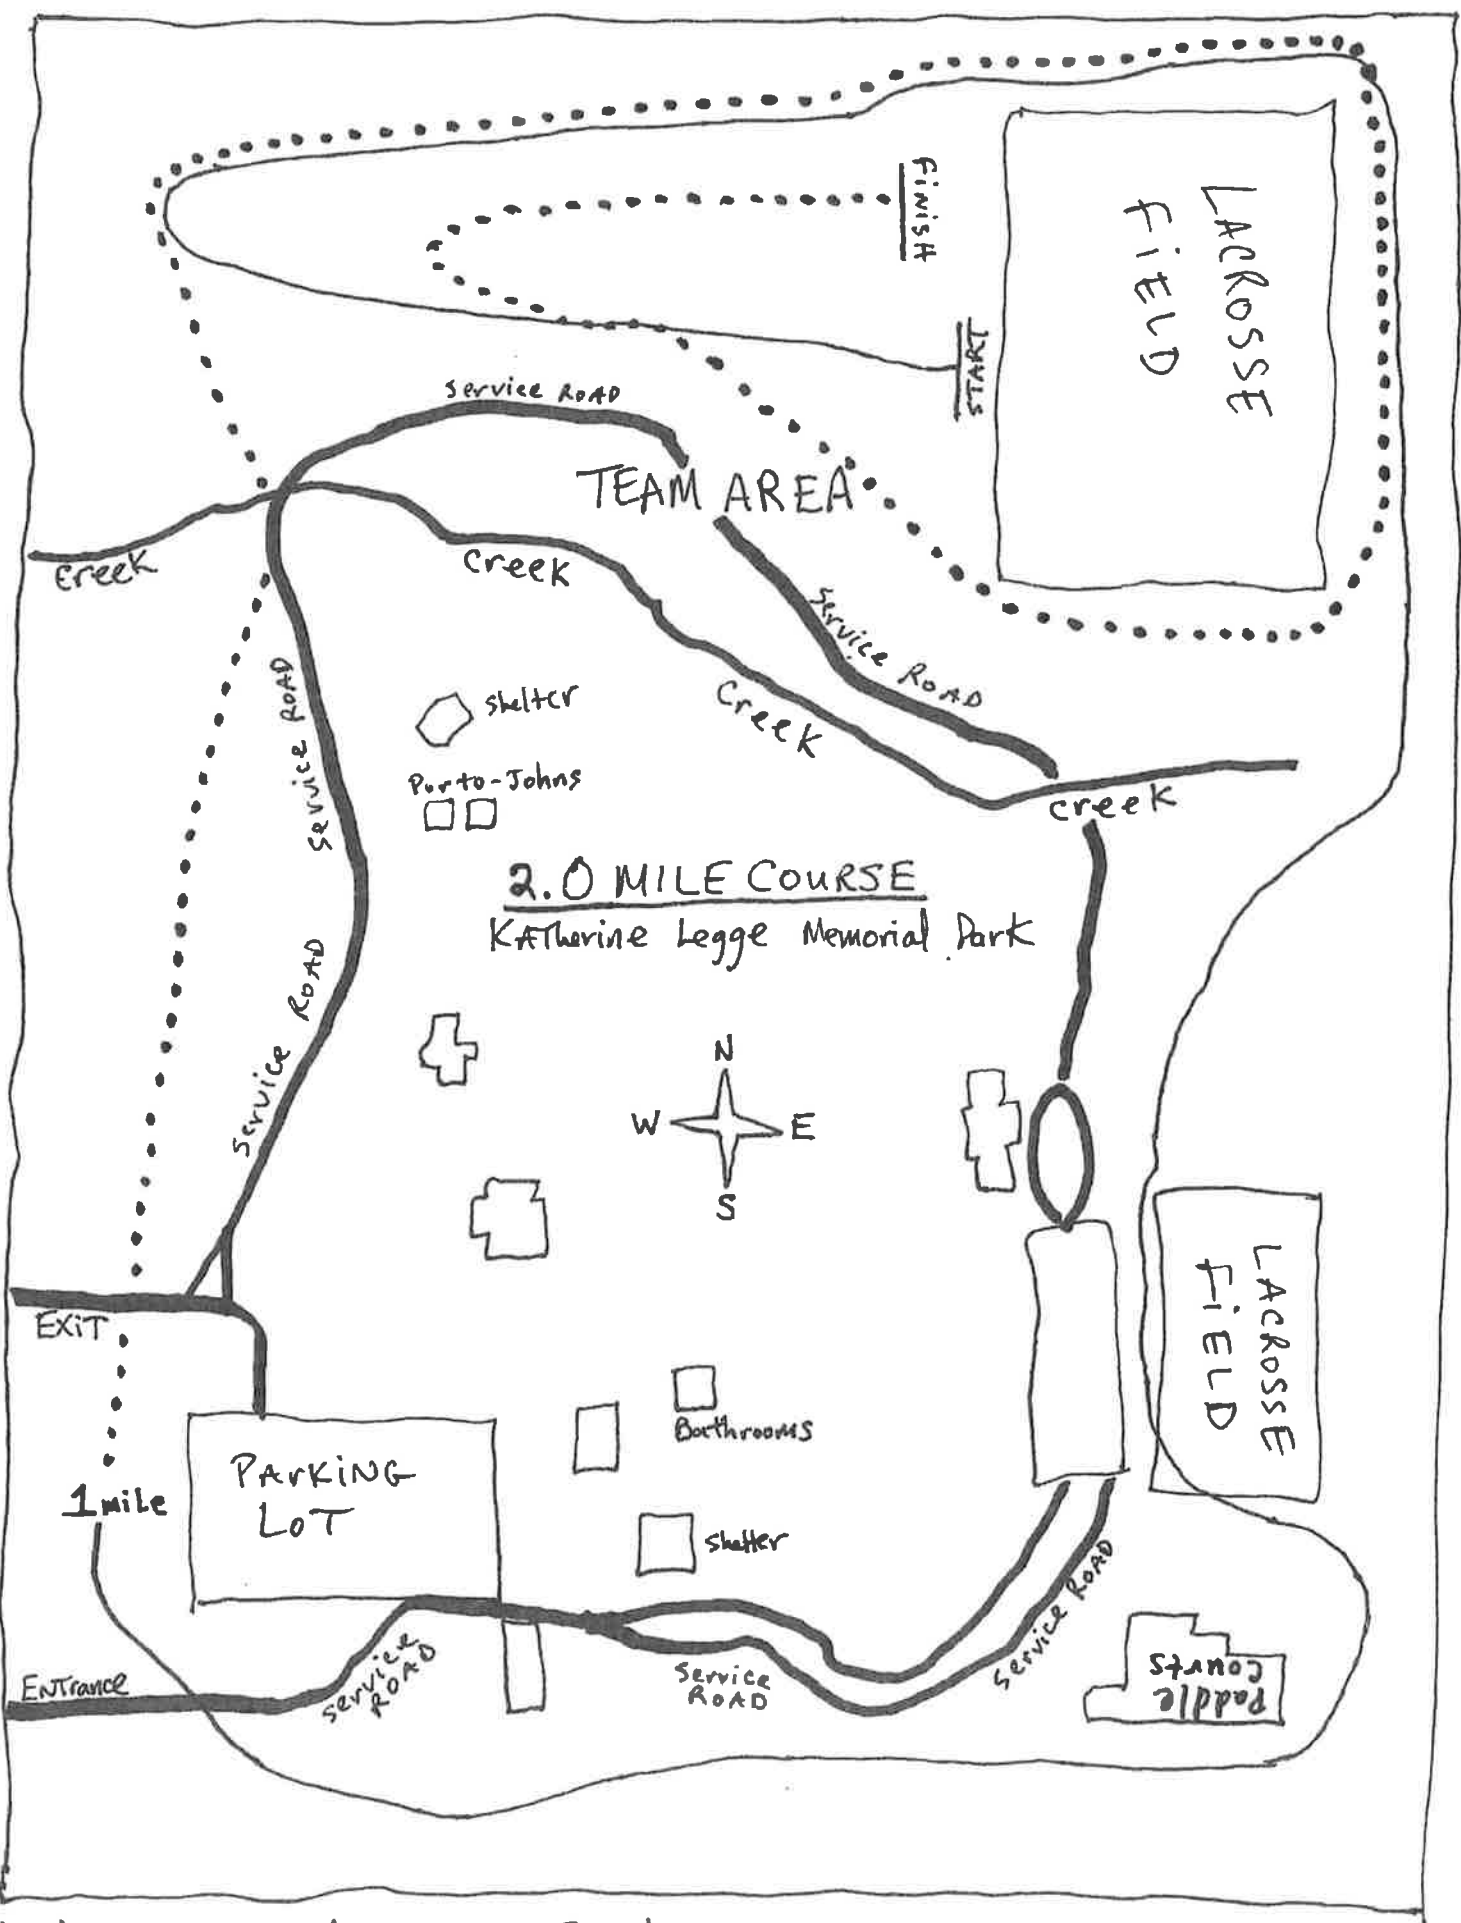 FiNisH
LACROSSE
FiELD
START
Service ROAD
TEAM AREA
Creek
Creek
Service ROAD
Creek
Creek
Service ROAD
Shelter
Porto-Johns
2.0 MILE COURSE
KATherine Legge Memorial Park
Service ROAD
N
W
E
S
EXiT
LACROSSE
FiELD
Bathrooms
PArKiNG
LoT
1 mile
Shelter
Service ROAD
Service
ROAD
Service
ROAD
ENTrance
Paddle
Courts